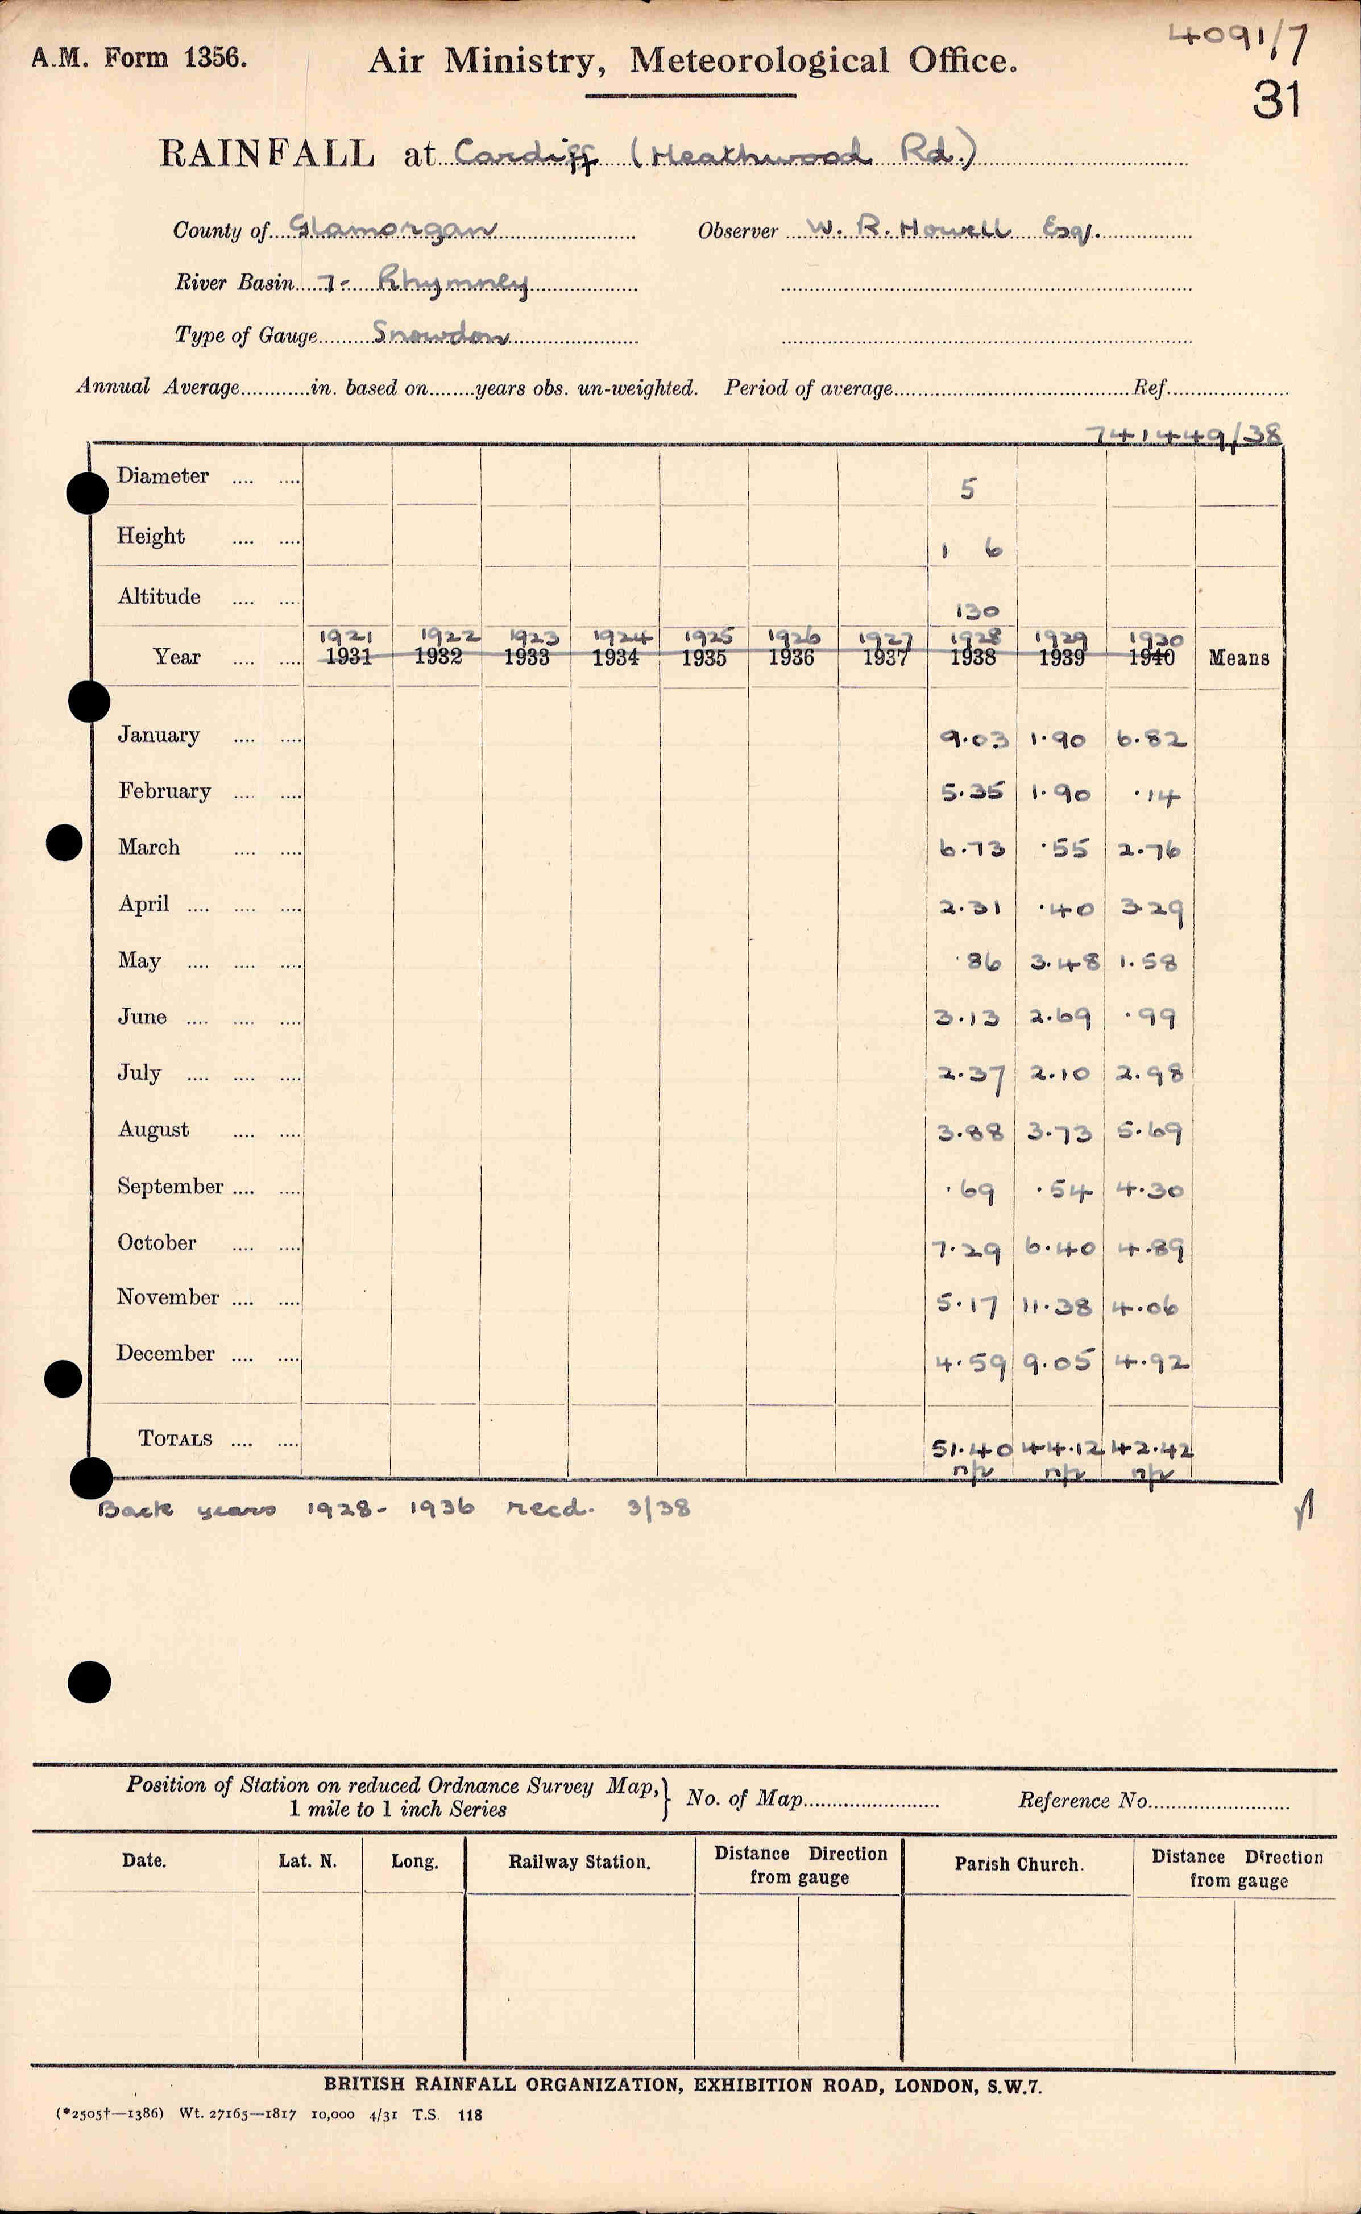 4091/7
A.M. Form 1356. Air Ministry, Meteorological Office.
31
RAINFALL at Cardiff (Heathwood Rd.)
County of Glamorgan Observer W. R. Howell Esq.
River Basin 7- Rhymney
Type of Gauge Snowdon
Annual Average in. based on years obs. un-weighted. Period of average Ref.
741449/38
Diameter 5
Height 1 6
Altitude 130
1921 1922 1923 1924 1925 1926 1927 1928 1929 1930
Year 1931 1932 1933 1934 1935 1936 1937 1938 1939 1940 Means
January 9.03 1.90 6.82
February 5.35 1.90 .14
March 6.73 .55 2.76
April 2.31 .40 3.29
May .86 3.48 1.58
June 3.13 2.69 .99
July 2.37 2.10 2.98
August 3.88 3.73 5.69
September .69 .54 4.30
October 7.29 6.40 4.89
November 5.17 11.38 4.06
December 4.59 9.05 4.92
TOTALS 51.40 44.12 42.42
n/p n/p n/p
Back years 1928-1936 recd. 3/38
Position of Station on reduced Ordnance Survey Map,} No. of Map Reference No.
1 mile to 1 inch Series
Date. Lat. N. Long. Railway Station. Distance Direction from gauge Parish Church. Distance Direction from gauge
BRITISH RAINFALL ORGANIZATION, EXHIBITION ROAD, LONDON, S.W.7.
(*2505†—1386) Wt. 27165—1817 10,000 4/31 T.S. 118